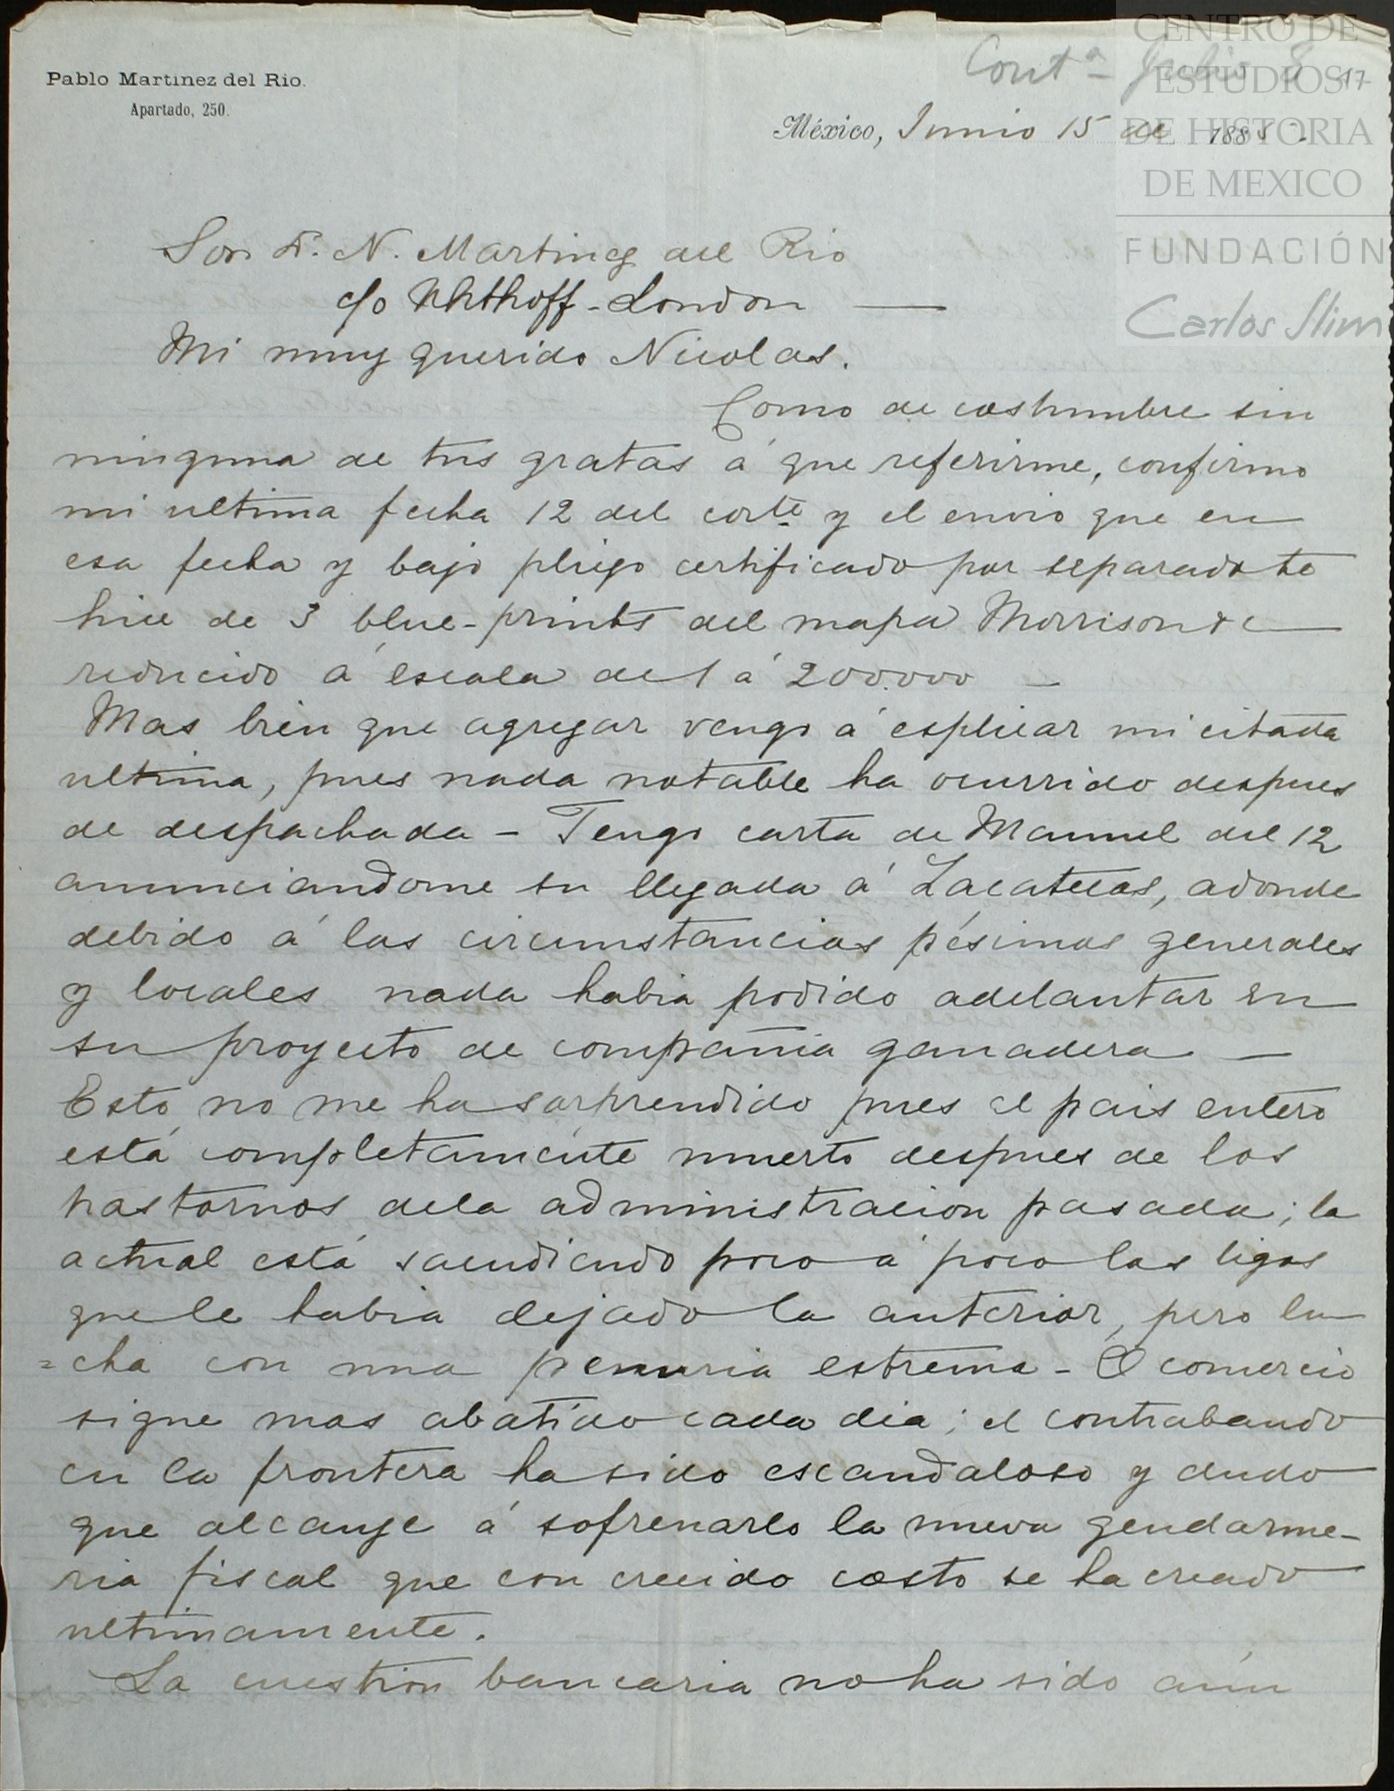 Pablo Martinez del Rio.
Apartado, 250.
Contª Julio 8 17
México, Junio 15 de 1885.
CENTRO DE
ESTUDIOS
DE HISTORIA
DE MEXICO
FUNDACIÓN
Carlos Slim
Sor. D. N. Martinez del Rio
c/o Uhthoff - London —
Mi muy querido Nicolas.
Como de costumbre sin
ninguna de tus gratas á que referirme, confirmo
mi ultima fecha 12 del corte y el envio que en
esa fecha y bajo pliego certificado por separado te
hice de 3 blue-prints del mapa Morrison &c
reducido á escala de 1 á 200.000 —
Mas bien que agregar vengo á esplicar mi citada
ultima, pues nada notable ha ocurrido despues
de despachada - Tengo carta de Manuel del 12
anunciandome su llegada á Zacatecas, adonde
debido á las circumstancias pésimas generales
y locales nada habia podido adelantar en
su proyecto de compañia ganadera —
Esto no me ha sorprendido pues el pais entero
está completamente muerto despues de los
trastornos dela administracion pasada; la
actual está sacudiendo poco á poco las ligas
que le habia dejado la anterior, pero lu
=cha con una penuria estrema - El comercio
sigue mas abatido cada dia; el contrabando
en la frontera ha sido escandaloso y dudo
que alcanze á sofrenarlo la nueva gendarme-
ria fiscal que con crecido costo se ha creado
ultimamente.
La cuestion bancaria no ha sido aún